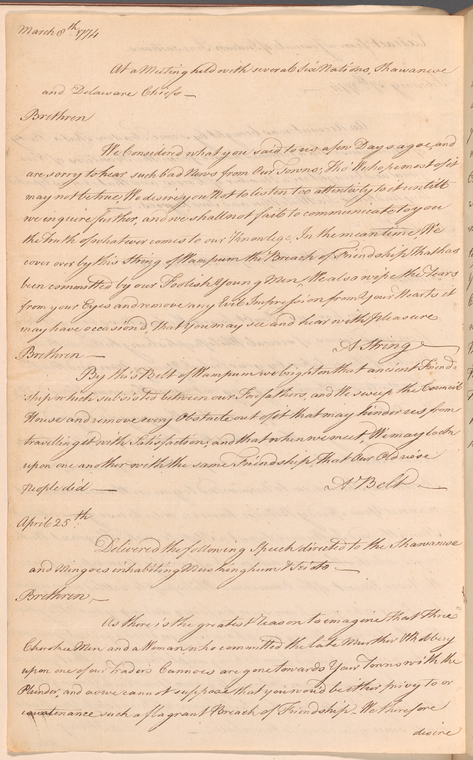 March 8th 1774
At a Meeting held with several Six Nations, Shawanese
and Delaware Chiefs —
Brethren
We Considered what you said to us a few Days ago, and
are sorry to hear such bad News from Our Towns, Tho' We hope most of it
may not be true, We desire you Not to listen too attentively to it untill
we enquire further, and we shall not fail to communicate to you
the truth of whatever comes to our Knowlege, In the mean time, We
cover over by this String of Wampum the Breach of Friendship that has
been committed by our Foolish Young Men, We also wipe the Tears
from your Eyes and remove any Evil Impression from Your Hearts it
may have occasiond, That you may see and hear with pleasure
A String
Brethren —
By this Belt of Wampum we brighten that ancient Friend-
ship which subsisted between our Forefathers, and We sweep the Council
House and remove every Obstacle out of it that may hinder us from
travelling it with Satisfaction, and that when we meet, We may look
upon one another with the same Friendship, That Our Old wise
People did —
A Belt —
April 25th
Delivered the following Speech directed to the Shawanese
and Mingoes inhabiting Muskinghum & Scioto —
Brethren, —
As there is the greatest reason to imagine that three
Cherokee Men and a Woman who committed the late Murther & Robbery
upon one of our Traders Cannoes are gone towards Your Towns with the
Plunder, and as we cannot suppose that you would be either privy to or
countenance such a flagrant Breach of Friendship. We therefore
desire